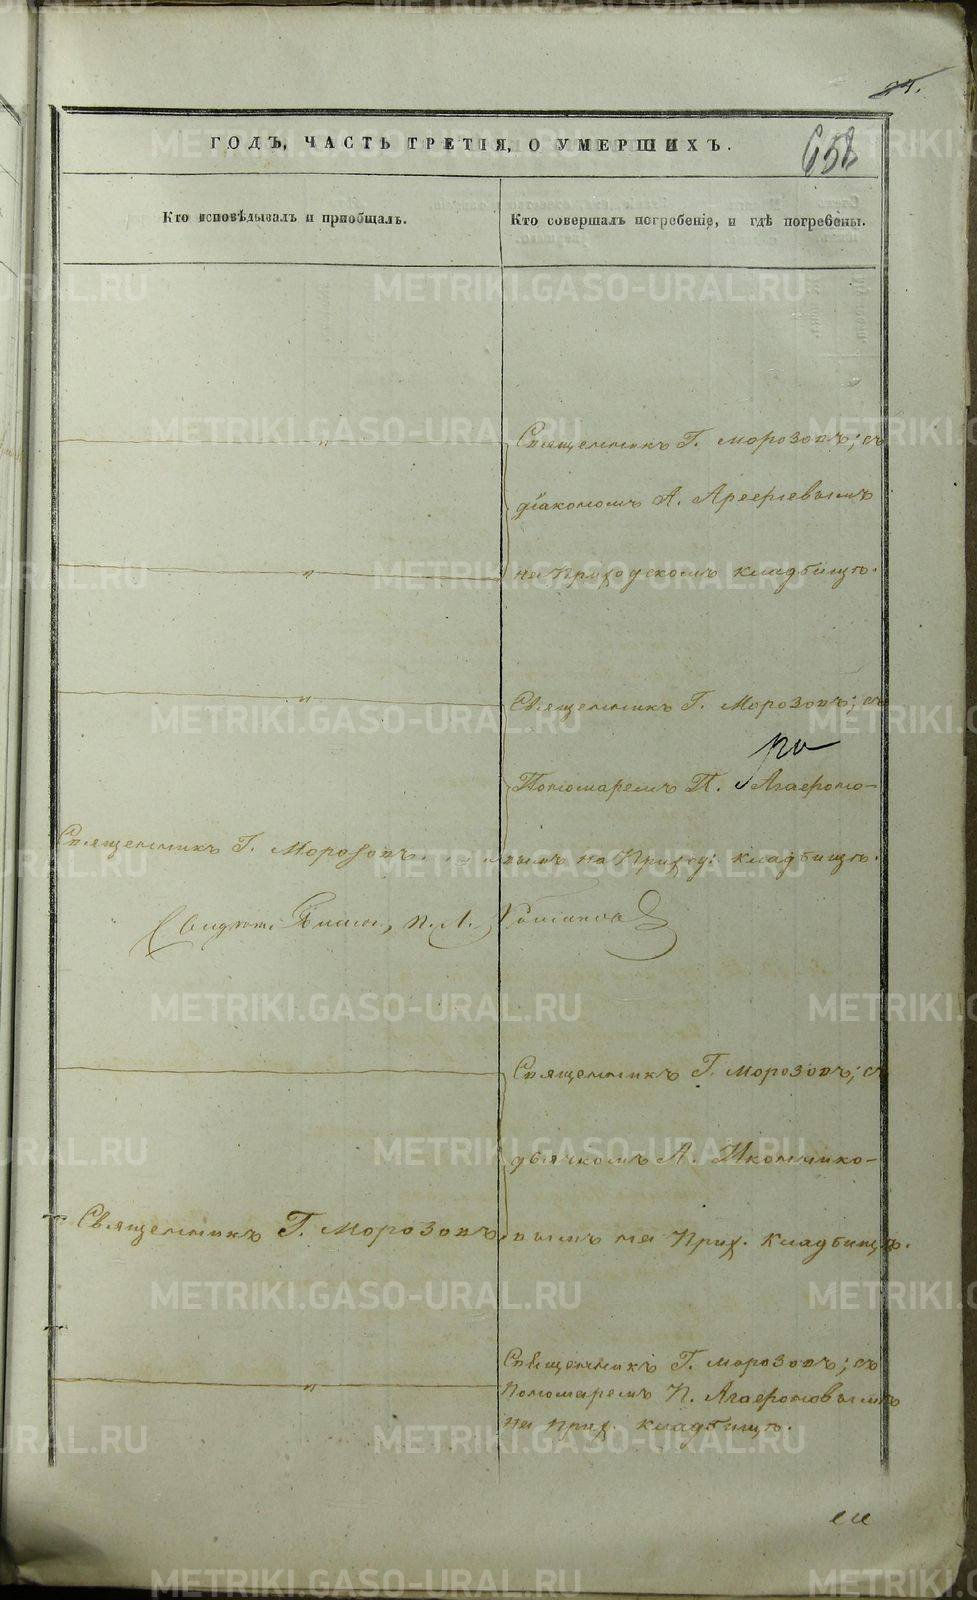 ГОДЪ, ЧАСТЬ ТРЕТІЯ, О УМЕРШИХЪ.
658
Кто исповѣдывалъ и пріобщалъ.
Кто совершалъ погребеніе, и гдѣ погребены.
Священникъ Г. Морозовъ; съ
діакономъ А. Арефьевымъ
на Приходскомъ кладбищѣ.
Священникъ Г. Морозовъ; съ
Пономаремъ П. Агафоно-
Священникъ Г. Морозовъ.
вымъ на Приход: кладбищѣ.
Священникъ Г. Морозовъ; съ
дьячкомъ А. Иконнико-
Священникъ Г. Морозовъ.
вымъ на Прих. кладбищѣ.
Священникъ Г. Морозовъ; съ
Пономаремъ П. Агафоновымъ
на прих. кладбищѣ.
METRIKI.GASO-URAL.RU